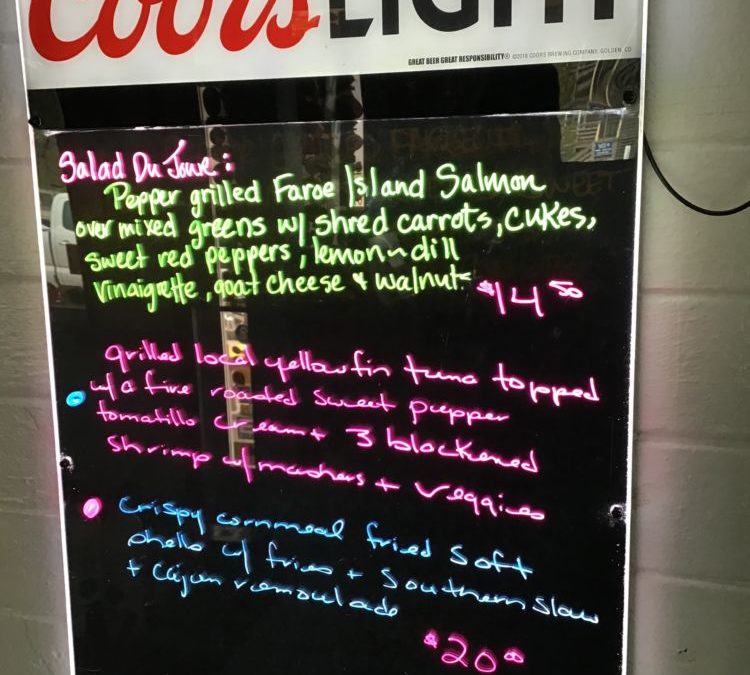 Coors LIGHT
GREAT BEER GREAT RESPONSIBILITY® ©2018 COORS BREWING COMPANY, GOLDEN, CO
Salad Du Jour:
Pepper grilled Faroe Island Salmon
over mixed greens w/ shred carrots, cukes,
sweet red peppers, lemon~dill
vinaigrette, goat cheese & walnuts
$14 50
grilled local yellowfin tuna topped
w/ a fire roasted sweet pepper
tomatillo cream + 3 blackened
shrimp w/ mashers + veggies
crispy cornmeal fried soft
shells w/ fries + southern slaw
+ cajun remoulade
$20 00